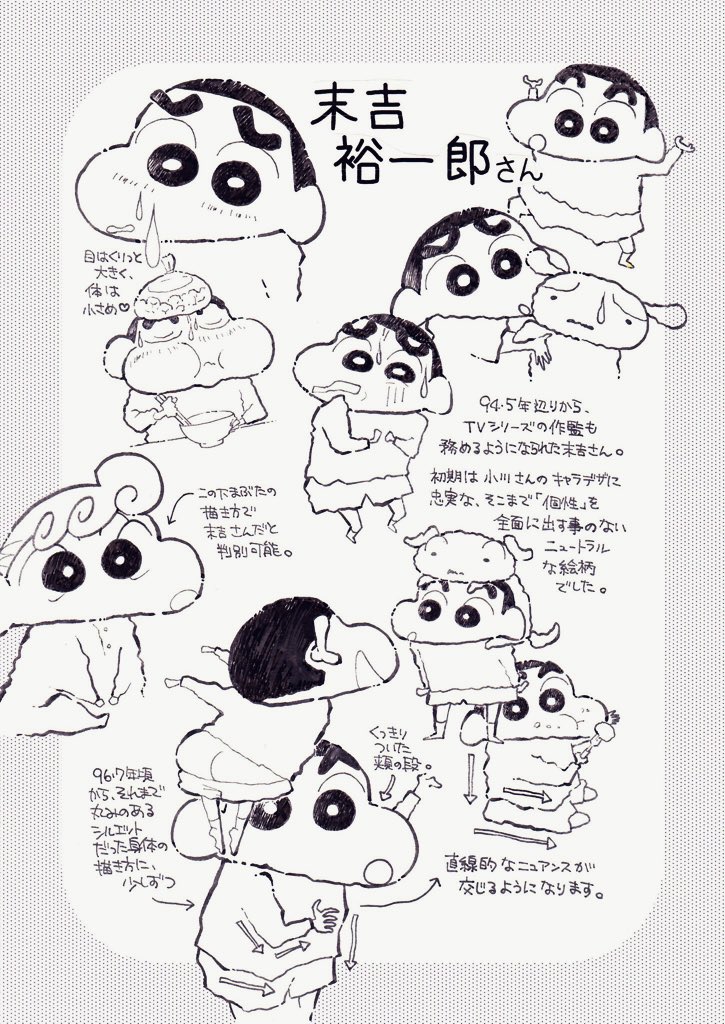 末吉
裕一郎さん
目はぐりっと
大きく、
体は
小さめ♡
94.5年辺りから、
TVシリーズの作監も
務めるようになられた末吉さん。
初期は小川さんのキャラデザに
忠実な、そこまで「個性」を
全面に出す事のない
ニュートラル
な絵柄
でした。
この下まぶたの
描き方で
末吉さんだと
判別可能。
くっきり
ついた
頬の段。
96.7年頃
から、それまで
丸みのある
シルエット
だった身体の
描き方に、
少しずつ
直線的なニュアンスが
交じるようになります。